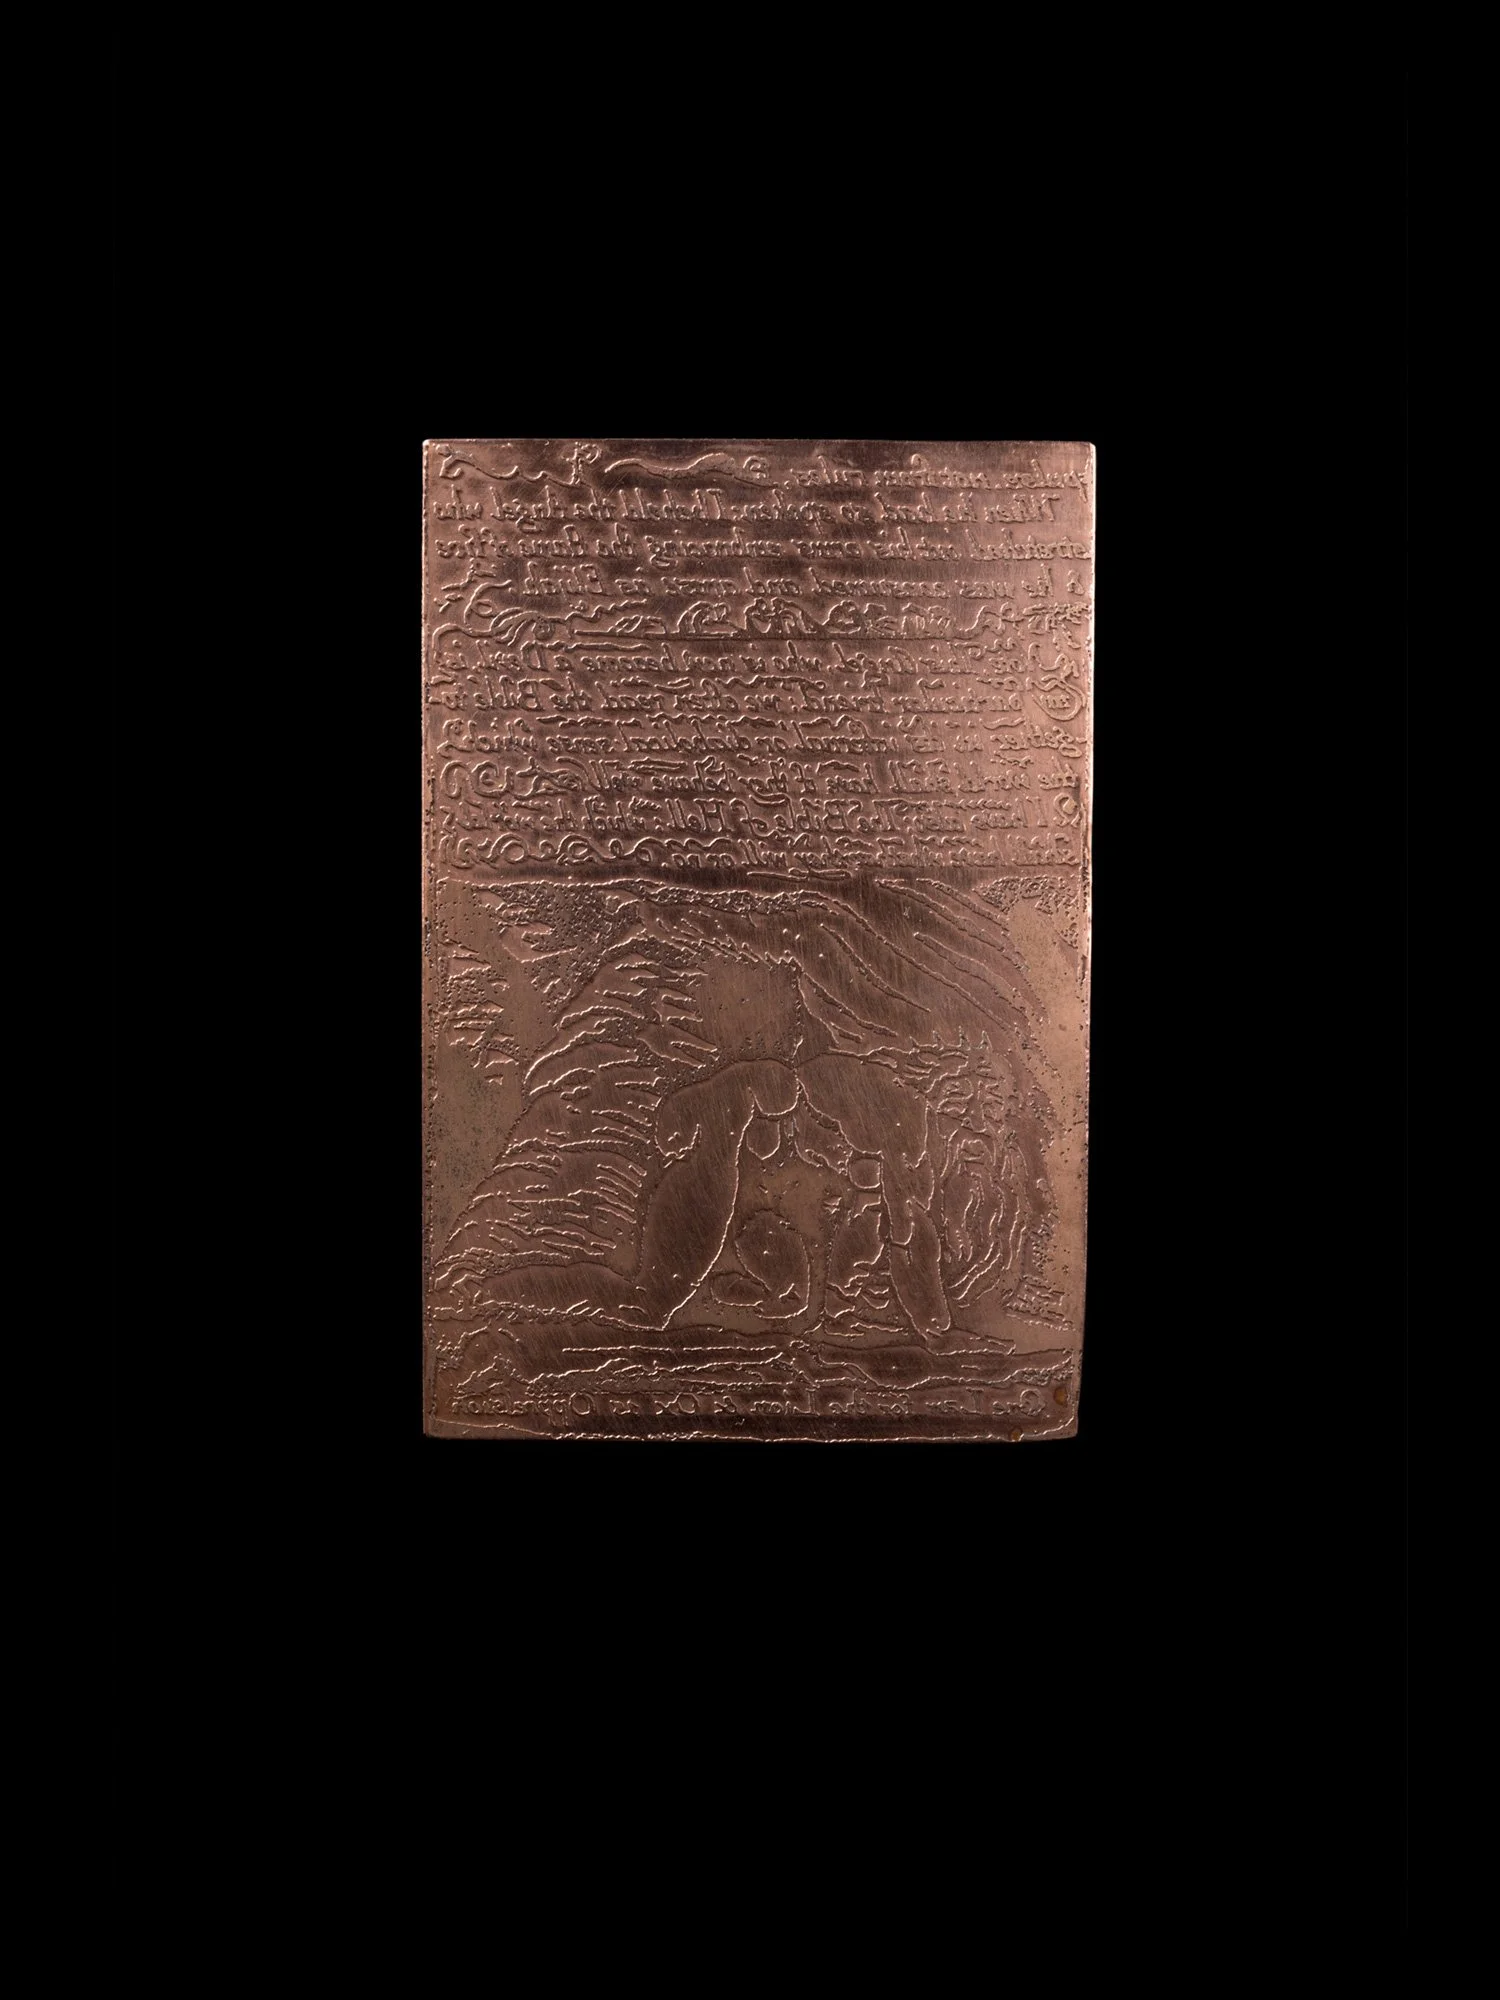 pulse, not from rules.
When he had so spoken: I beheld the Angel who
stretched out his arms embracing the flame of fire
& he was consumed and arose as Elijah.
Note. This Angel, who is now become a Devil, is
my particular friend: we often read the Bible to
gether in its infernal or diabolical sense which
the world shall have if they behave well
I have also: The Bible of Hell: which the world
shall have whether they will or no.
One Law for the Lion & Ox is Oppression